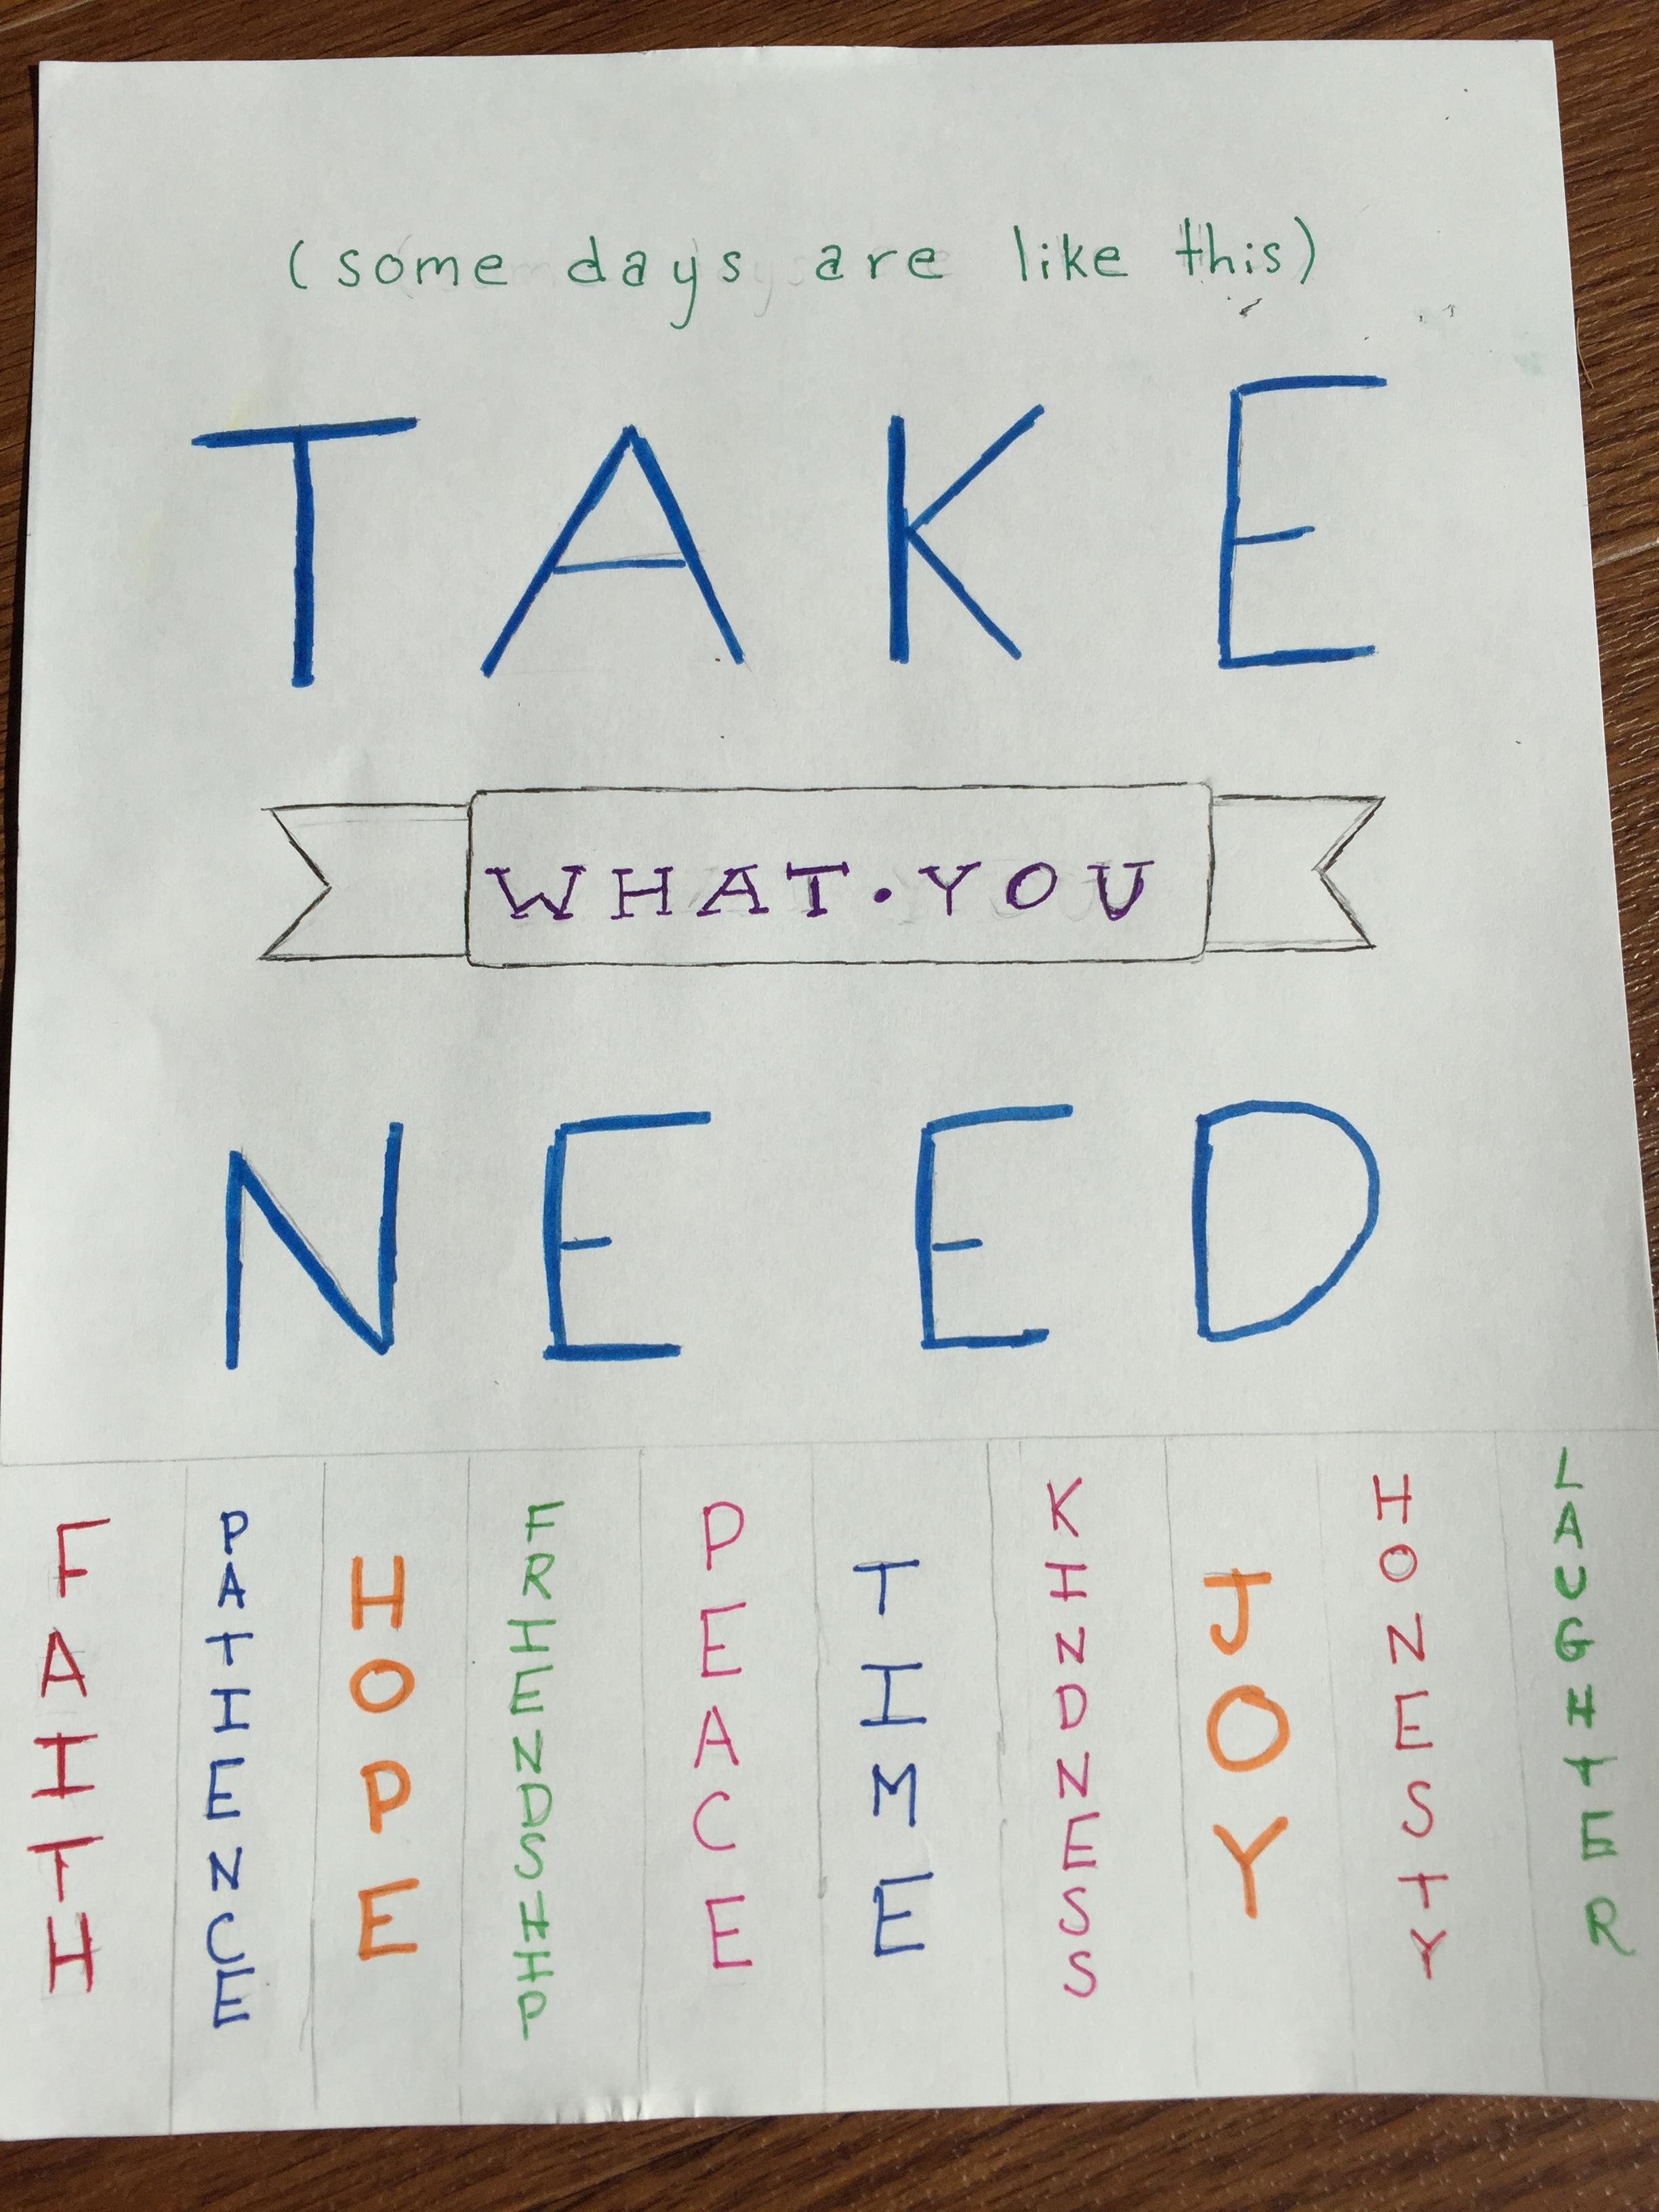 (some days are like this)
TAKE
WHAT•YOU
NEED
FAITH
PATIENCE
HOPE
FRIENDSHIP
PEACE
TIME
KINDNESS
JOY
HONESTY
LAUGHTER